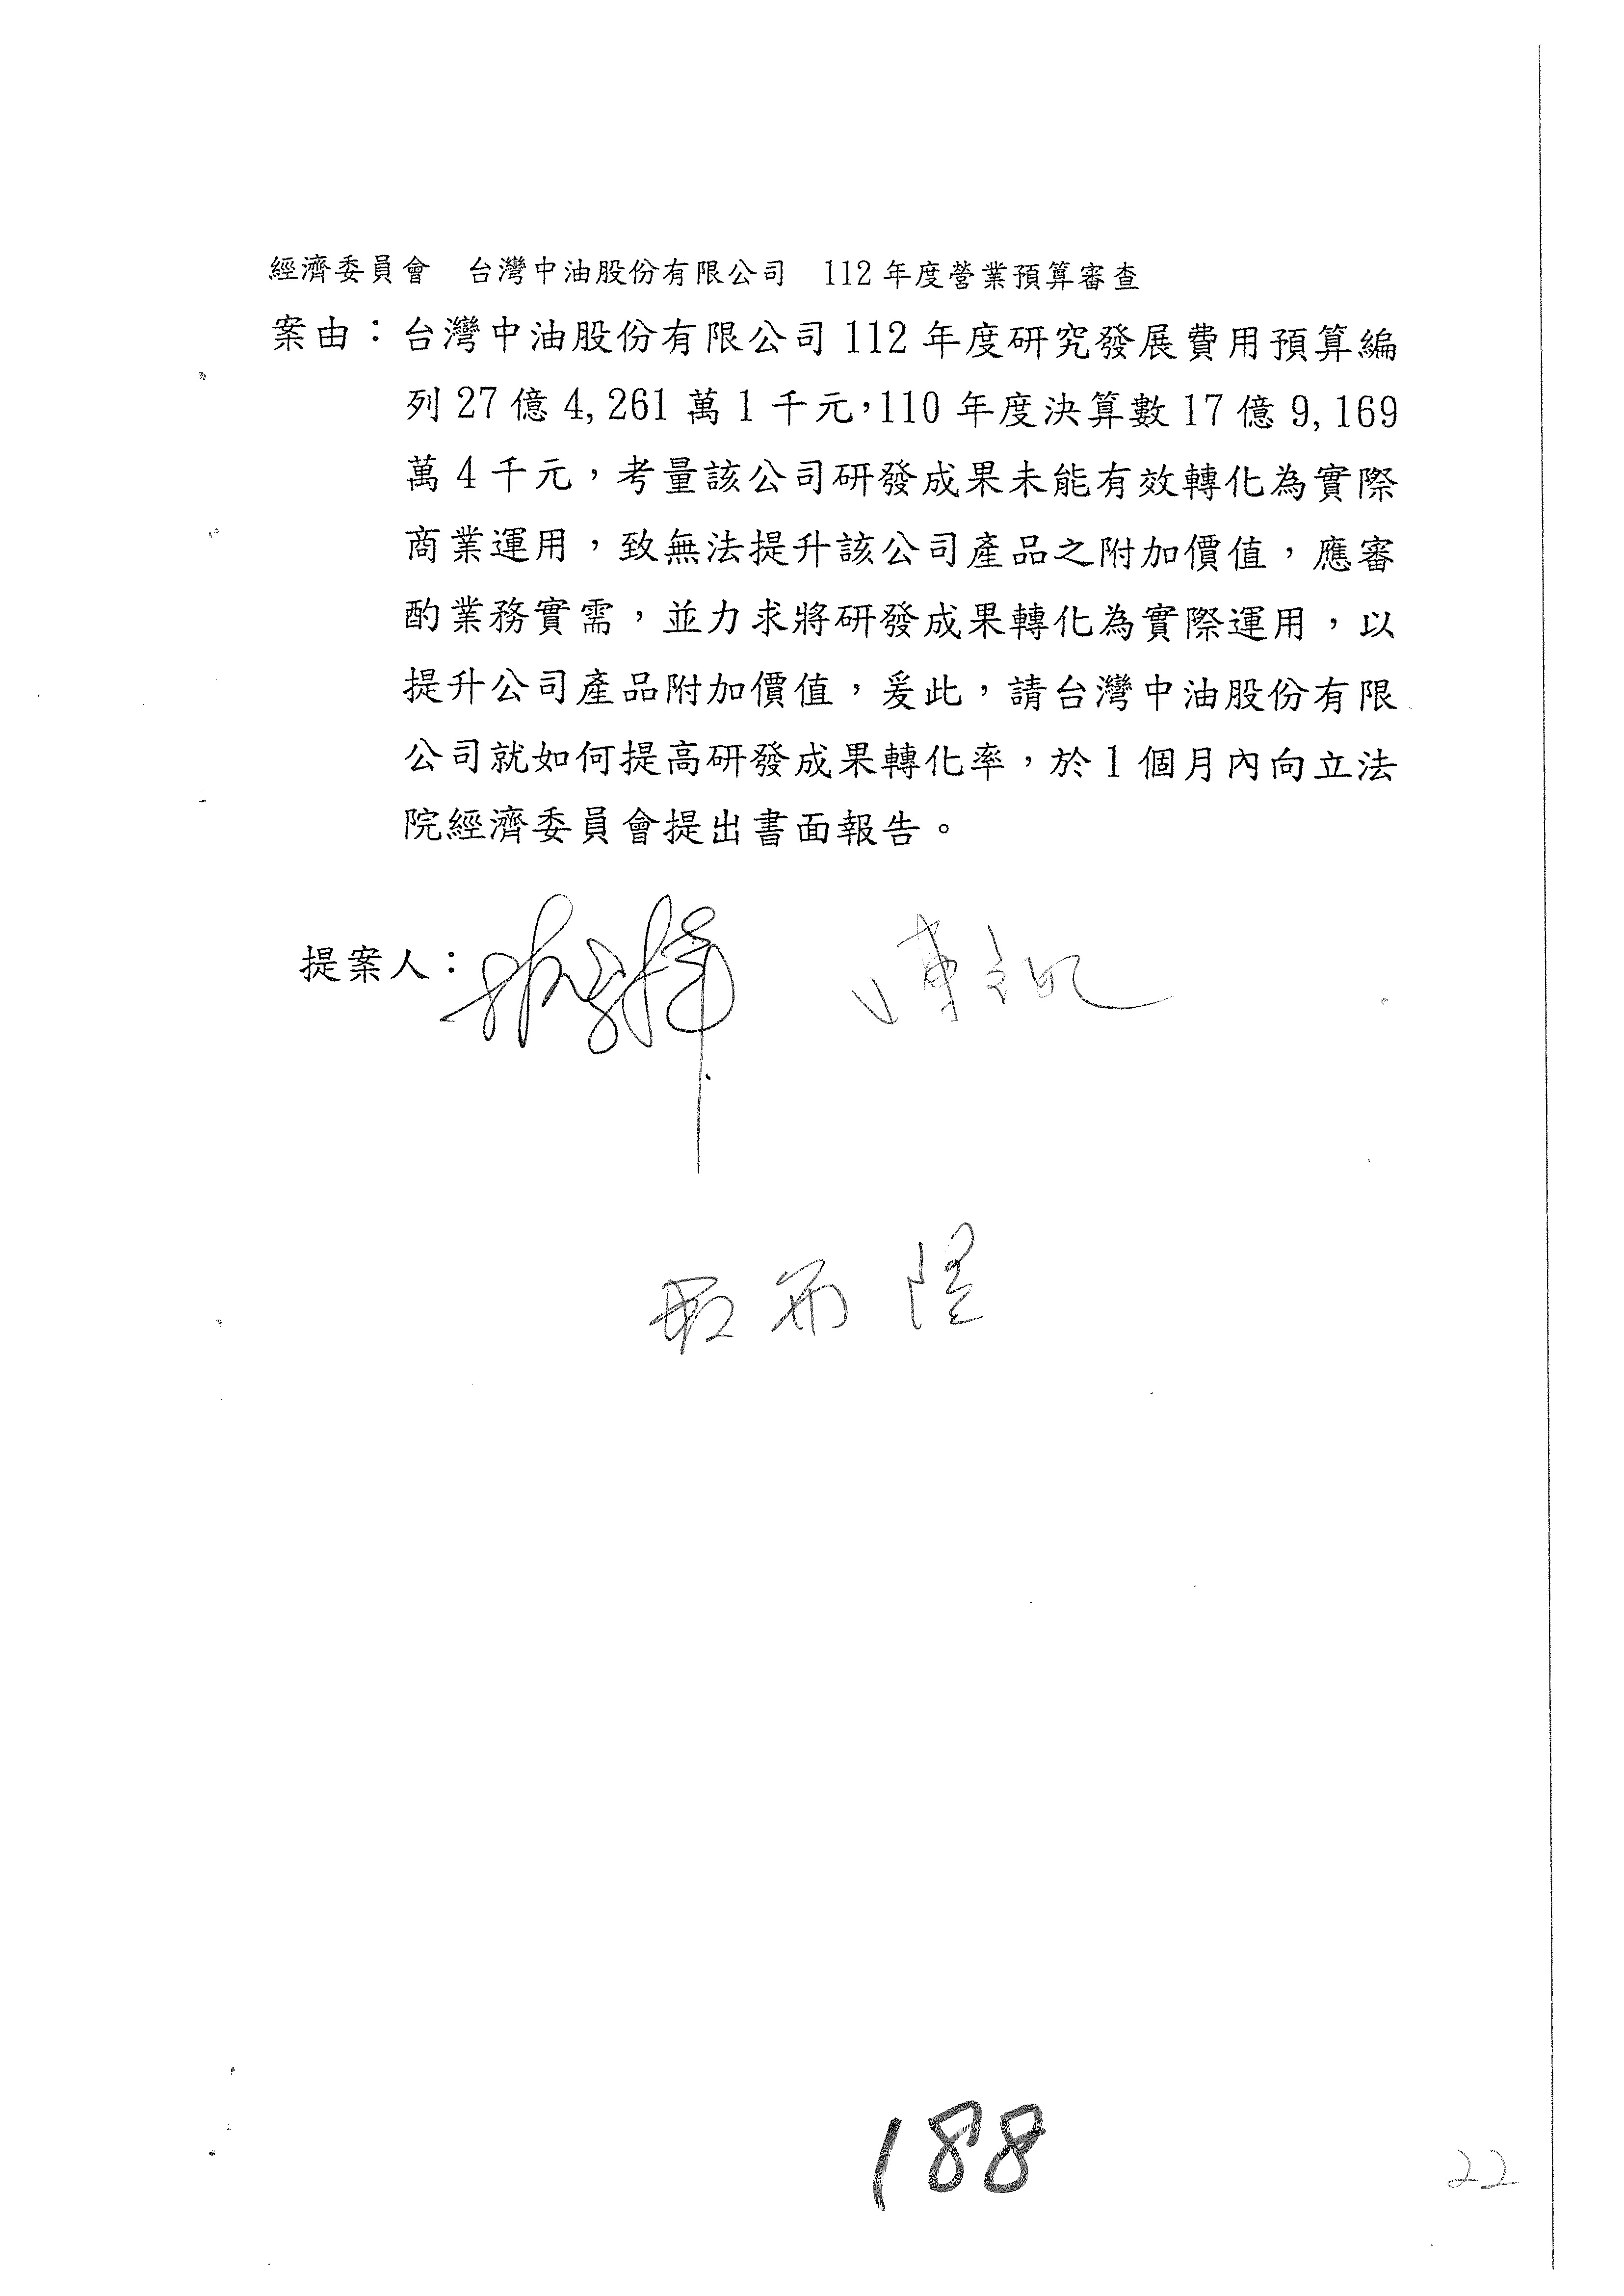 經濟委員會 台灣中油股份有限公司 112年度營業預算審查
案由：台灣中油股份有限公司112年度研究發展費用預算編
列27億4,261萬1千元，110年度決算數17億9,169
萬4千元，考量該公司研發成果未能有效轉化為實際
商業運用，致無法提升該公司產品之附加價值，應審
酌業務實需，並力求將研發成果轉化為實際運用，以
提升公司產品附加價值，爰此，請台灣中油股份有限
公司就如何提高研發成果轉化率，於1個月內向立法
院經濟委員會提出書面報告。
提案人：
188
22